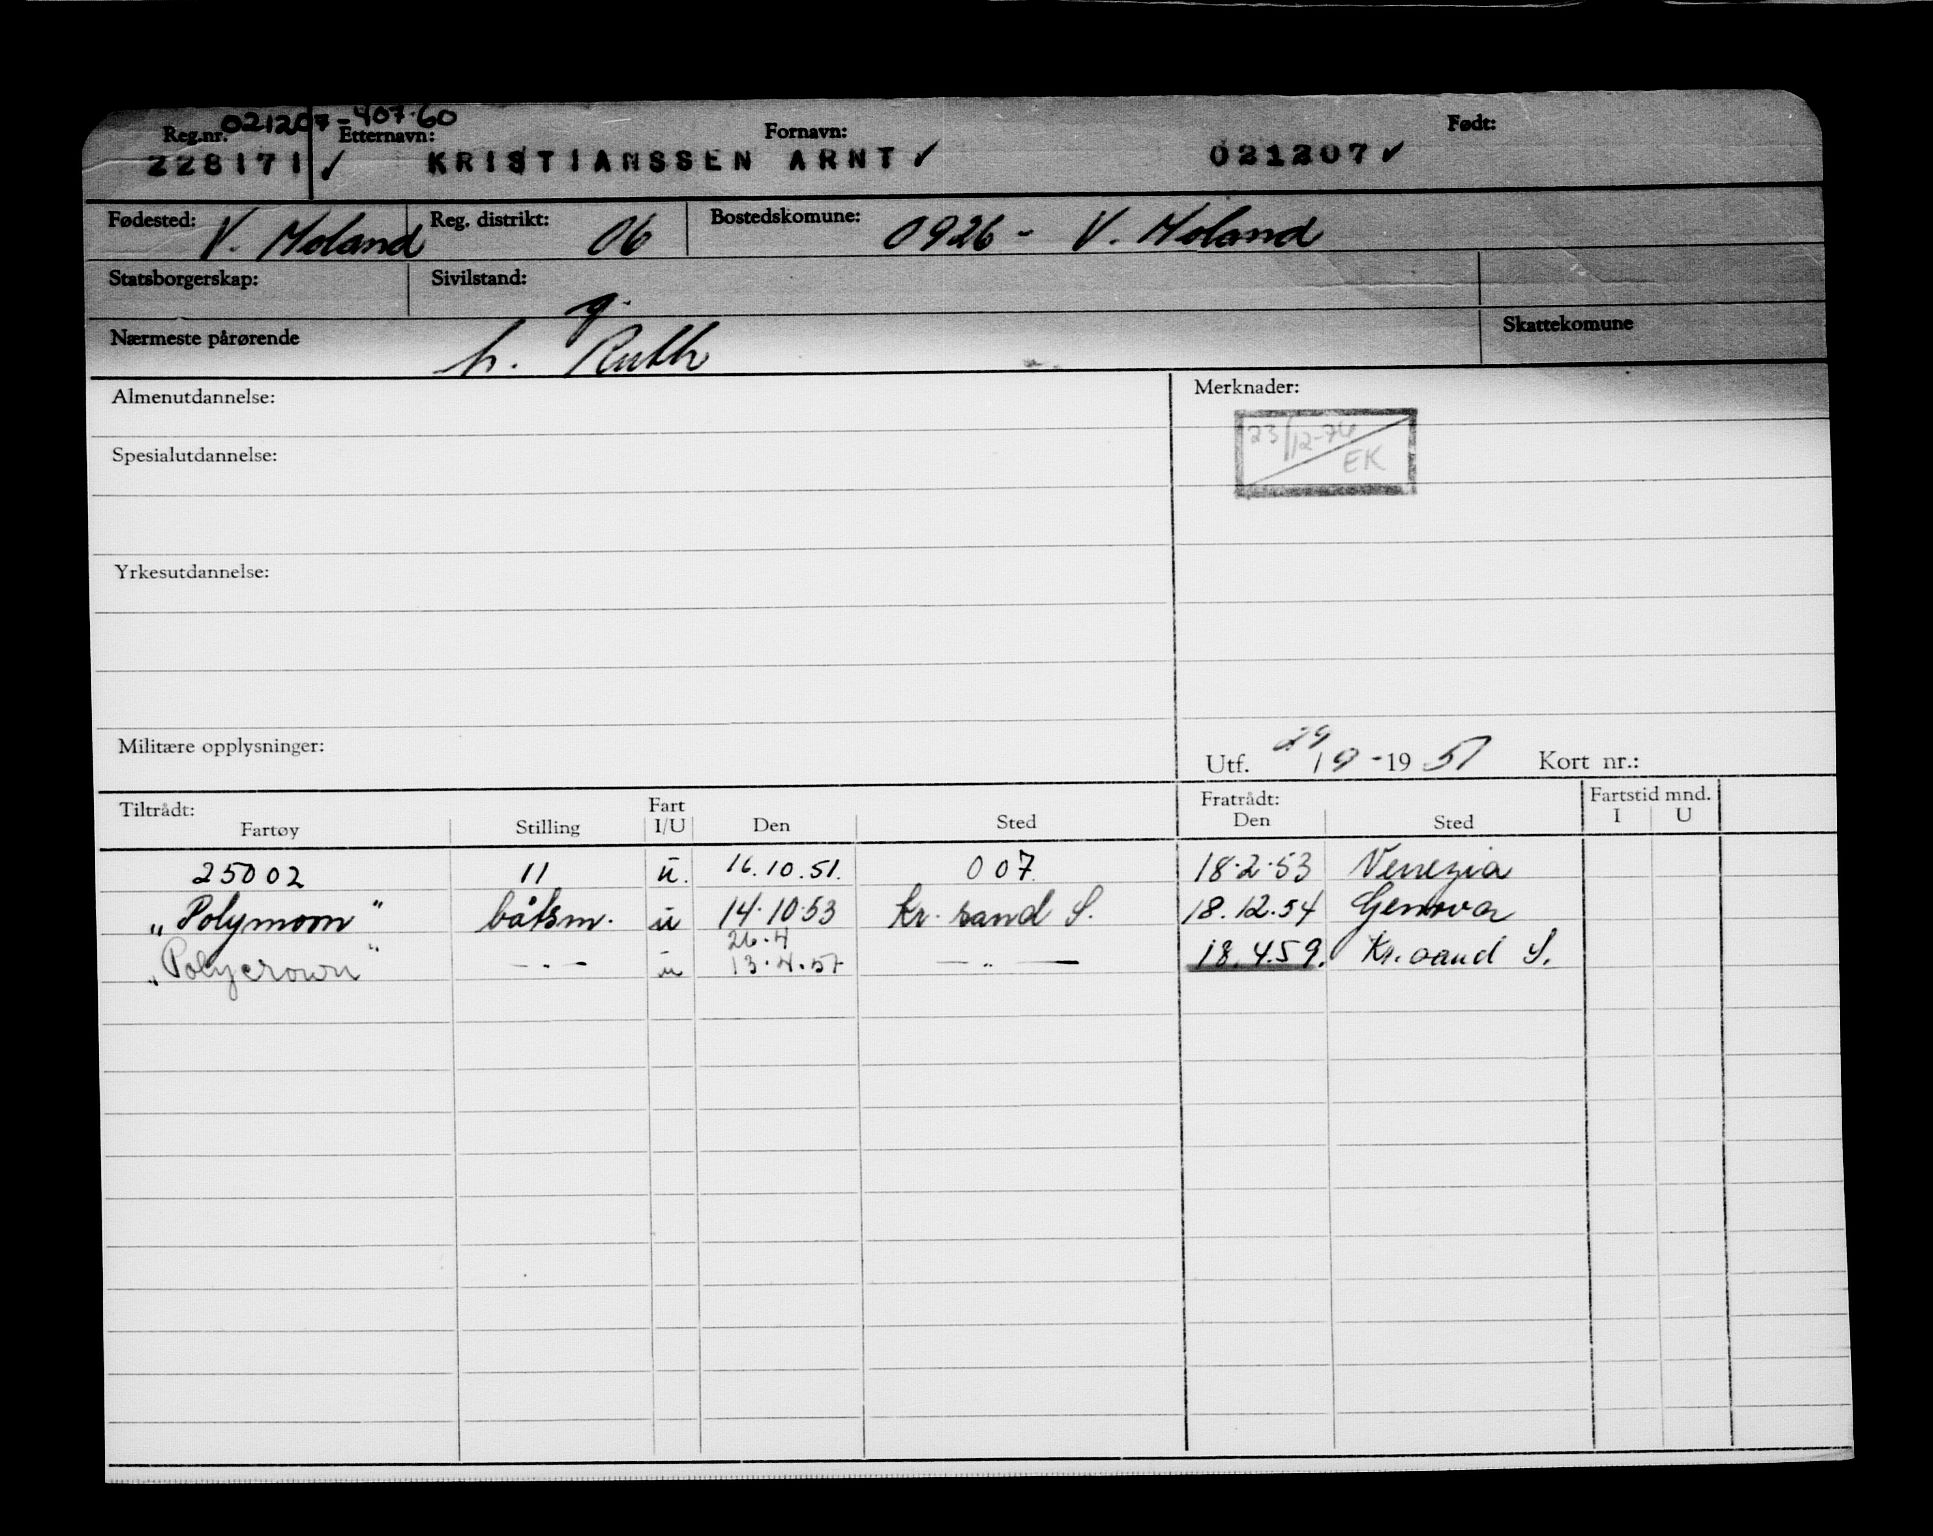 021207-407.60
Reg.nr. Etternavn: Fornavn: Født:
228171 ✓ KRISTIANSSEN ARNT ✓ 021207 ✓
Fødested: V. Moland Reg. distrikt: 06 Bostedskomune: 0926 - V. Moland
Statsborgerskap: Sivilstand: g.
Nærmeste pårørende h. Ruth Skattekomune
Almenutdannelse: Merknader:
23/12-76
EK
Spesialutdannelse:
Yrkesutdannelse:
Militære opplysninger: Utf. 29/9-1951 Kort nr.:
Tiltrådt: Fart Fratrådt: Fartstid mnd.
Fartøy Stilling I/U Den Sted Den Sted I U
25002 11 u. 16.10.51. 007 18.2.53 Venezia
„Polymoon" båtsm. u 14.10.53 Kr. sand S. 18.12.54 Genova
26.4
„Polycrown" — " — u 13.4.57 — " — 18.4.59. Kr. sand S.